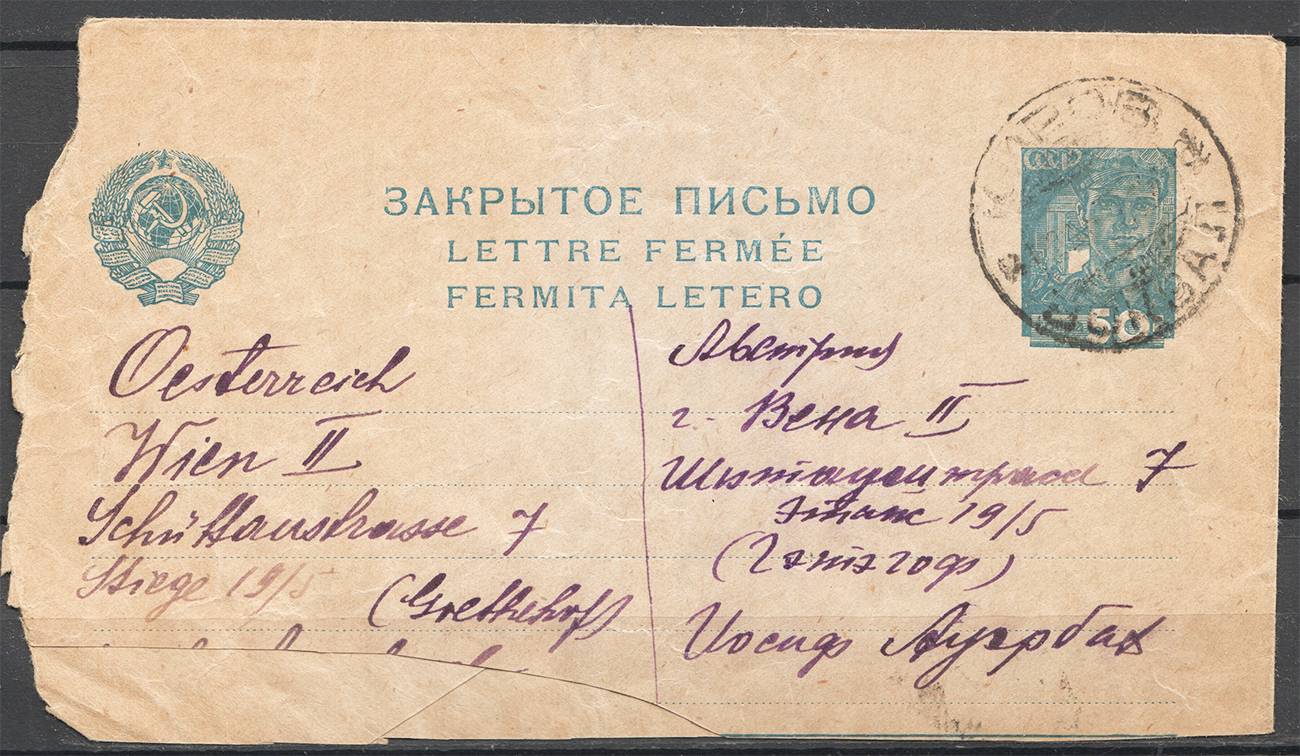 ЗАКРЫТОЕ ПИСЬМО
LETTRE FERMÉE
FERMITA LETERO
СССР
50
Oesterreich
Wien II
Schüttaustrasse 7
Stiege 19/5
(Goethehof)
Австрия
г. Вена II
Шиттауштрассе 7
Этаж 19/5
(Гэтэгоф)
Иосиф Ауэрбах